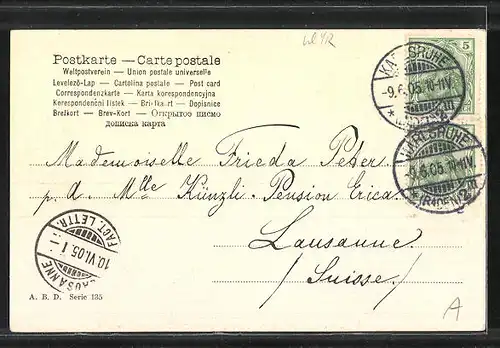 Postkarte — Carte postale
Weltpostverein — Union postale universelle
Levelező-Lap — Cartolina postale — Post card
Correspondenzkarte — Karta korespondencyjna
Korespondenční lístek — Briefkart — Dopisnice
Brefkort — Brev-Kort — Открытое письмо
дописна карта
5
KARLSRUHE
-9.6.05. 10-11V.
KARLSRUHE
-9.6.05. 10-11V.
(BADEN) 2
Mademoiselle Frieda Peter
p. d. Mlle Künzli - Pension Erica
Lausanne
/Suisse/
LAUSANNE
10.VI.05
FACT. LETTR.
A. B. D. Serie 135
A